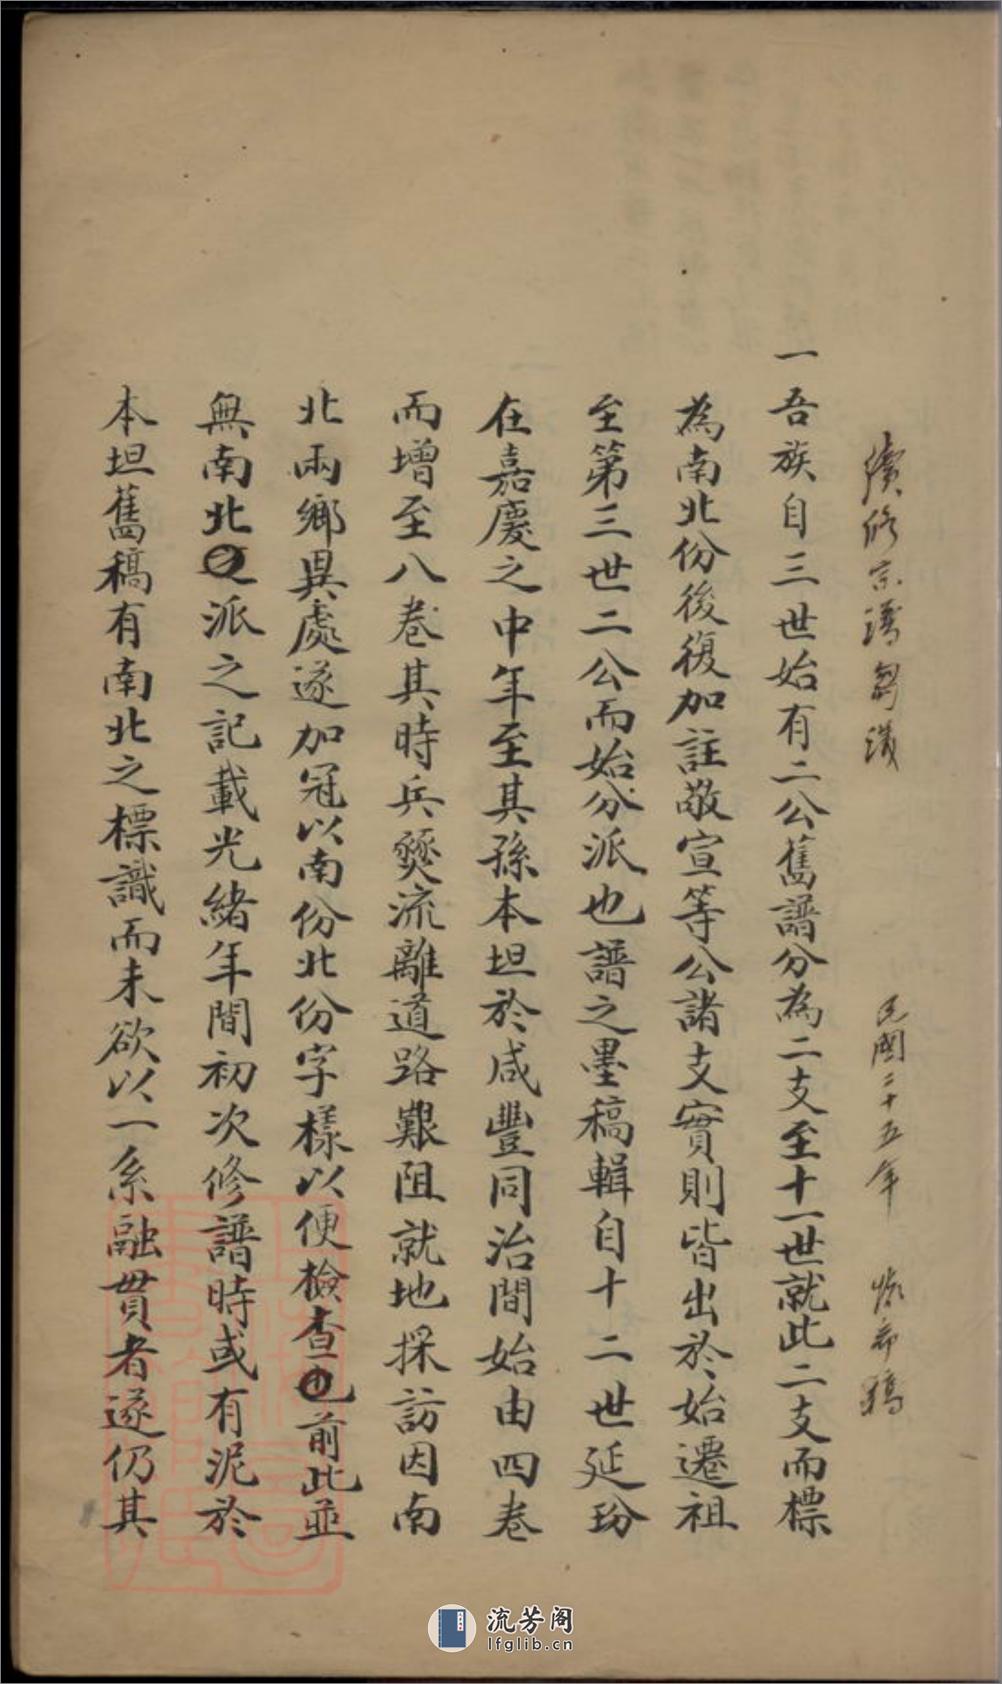 續修宗譜芻議　民國二十五年　　稿
一吾族自三世始有二公舊譜分為二支至十一世就此二支而標
為南北份後復加註敬宣等公諸支實則皆出於始遷祖
至第三世二公而始分派也譜之墨稿輯自十二世延玢
在嘉慶之中年至其孫本坦於咸豐同治間始由四卷
而增至八卷其時兵燹流離道路艱阻就地採訪因南
北兩鄉異處遂加冠以南份北份字樣以便檢查也前此並
無南北之派之記載光緒年間初次修譜時或有泥於
本坦舊稿有南北之標識而未欲以一系融貫者遂仍其
流芳阁
lfglib.cn